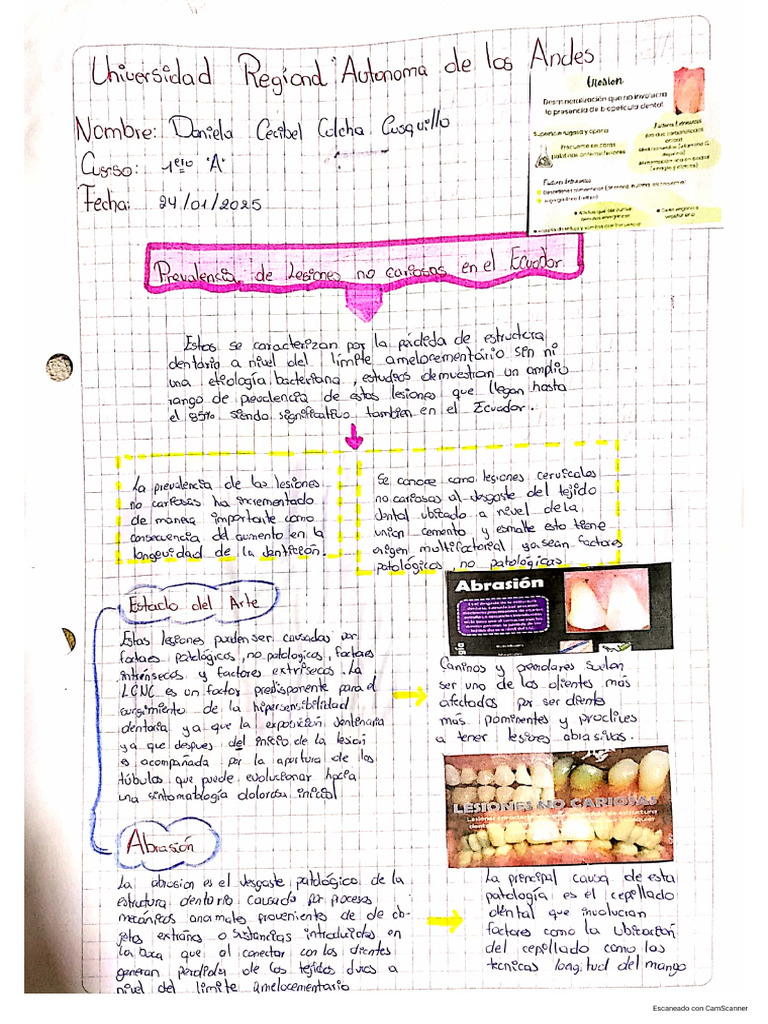 Universidad Regional Autonoma de los Andes
Nombre: Daniela Cecibel Colcha Cusquillo
Curso: 1ero "A"
Fecha: 24/01/2025
Erosion
Desmineralización que no involucra
la presencia de biopelícula dental.
Superficie rugosa y opaca
Frecuente en caras
Factores Extrínsecos
Factores Intrínsecos
Prevalencia de Lesiones no cariosas en el Ecuador
Estas se caracterizan por la pérdida de estructura
dentaria a nivel del límite amelocementário sin ni
una etiología bacteriana, estudios demuestran un amplio
rango de prevalencia de estas lesiones que llegan hasta
el 85% siendo significativo tambien en el Ecuador.
La prevalencia de las lesiones
no cariosas ha incrementado
de manera importante como
consecuencia del aumento en la
longevidad de la dentición.
Se conoce como lesiones cervicales
no cariosas al desgaste del tejido
dental ubicado a nivel de la
union cemento y esmalte esto tiene
origen multifactorial ya sean factores
patológicos, no patológicos
Estado del Arte
Estas lesiones pueden ser causadas por
factores patológicos, no patologicos, factores
intrénsecos y factores extrísecos. La
LCNC es un factor predisponente para el
surgimiento de la hipersensibilidad
dentaria ya que la exposición dentenaria
ya que despues del inicio de la lesion
es acompañada por la apertura de los
túbulos que puede evolucionar hacia
una sintomatología dolorosa inicial
Abrasión
Caninos y premolares suelen
ser uno de los dientes más
afectados por ser dientes
más pominentes y proclives
a tener lesiones abrasivas.
LESIONES NO CARIOSAS
Abrasión
La abrasion es el desgaste patológico de la
estructura dentario causado por procesos
mecánicos anormales proveniente de de ob-
jetos extraños o sustancias introducidas en
la boca que al conectar con los dientes
generan perdida de los tejidos duros a
nivel del limite amelocementario
La principal causa de esta
patología es el cepellado
dental que involucran
factores como la ubicación
del cepellado como las
tecnicas longitud del mango
Escaneado con CamScanner